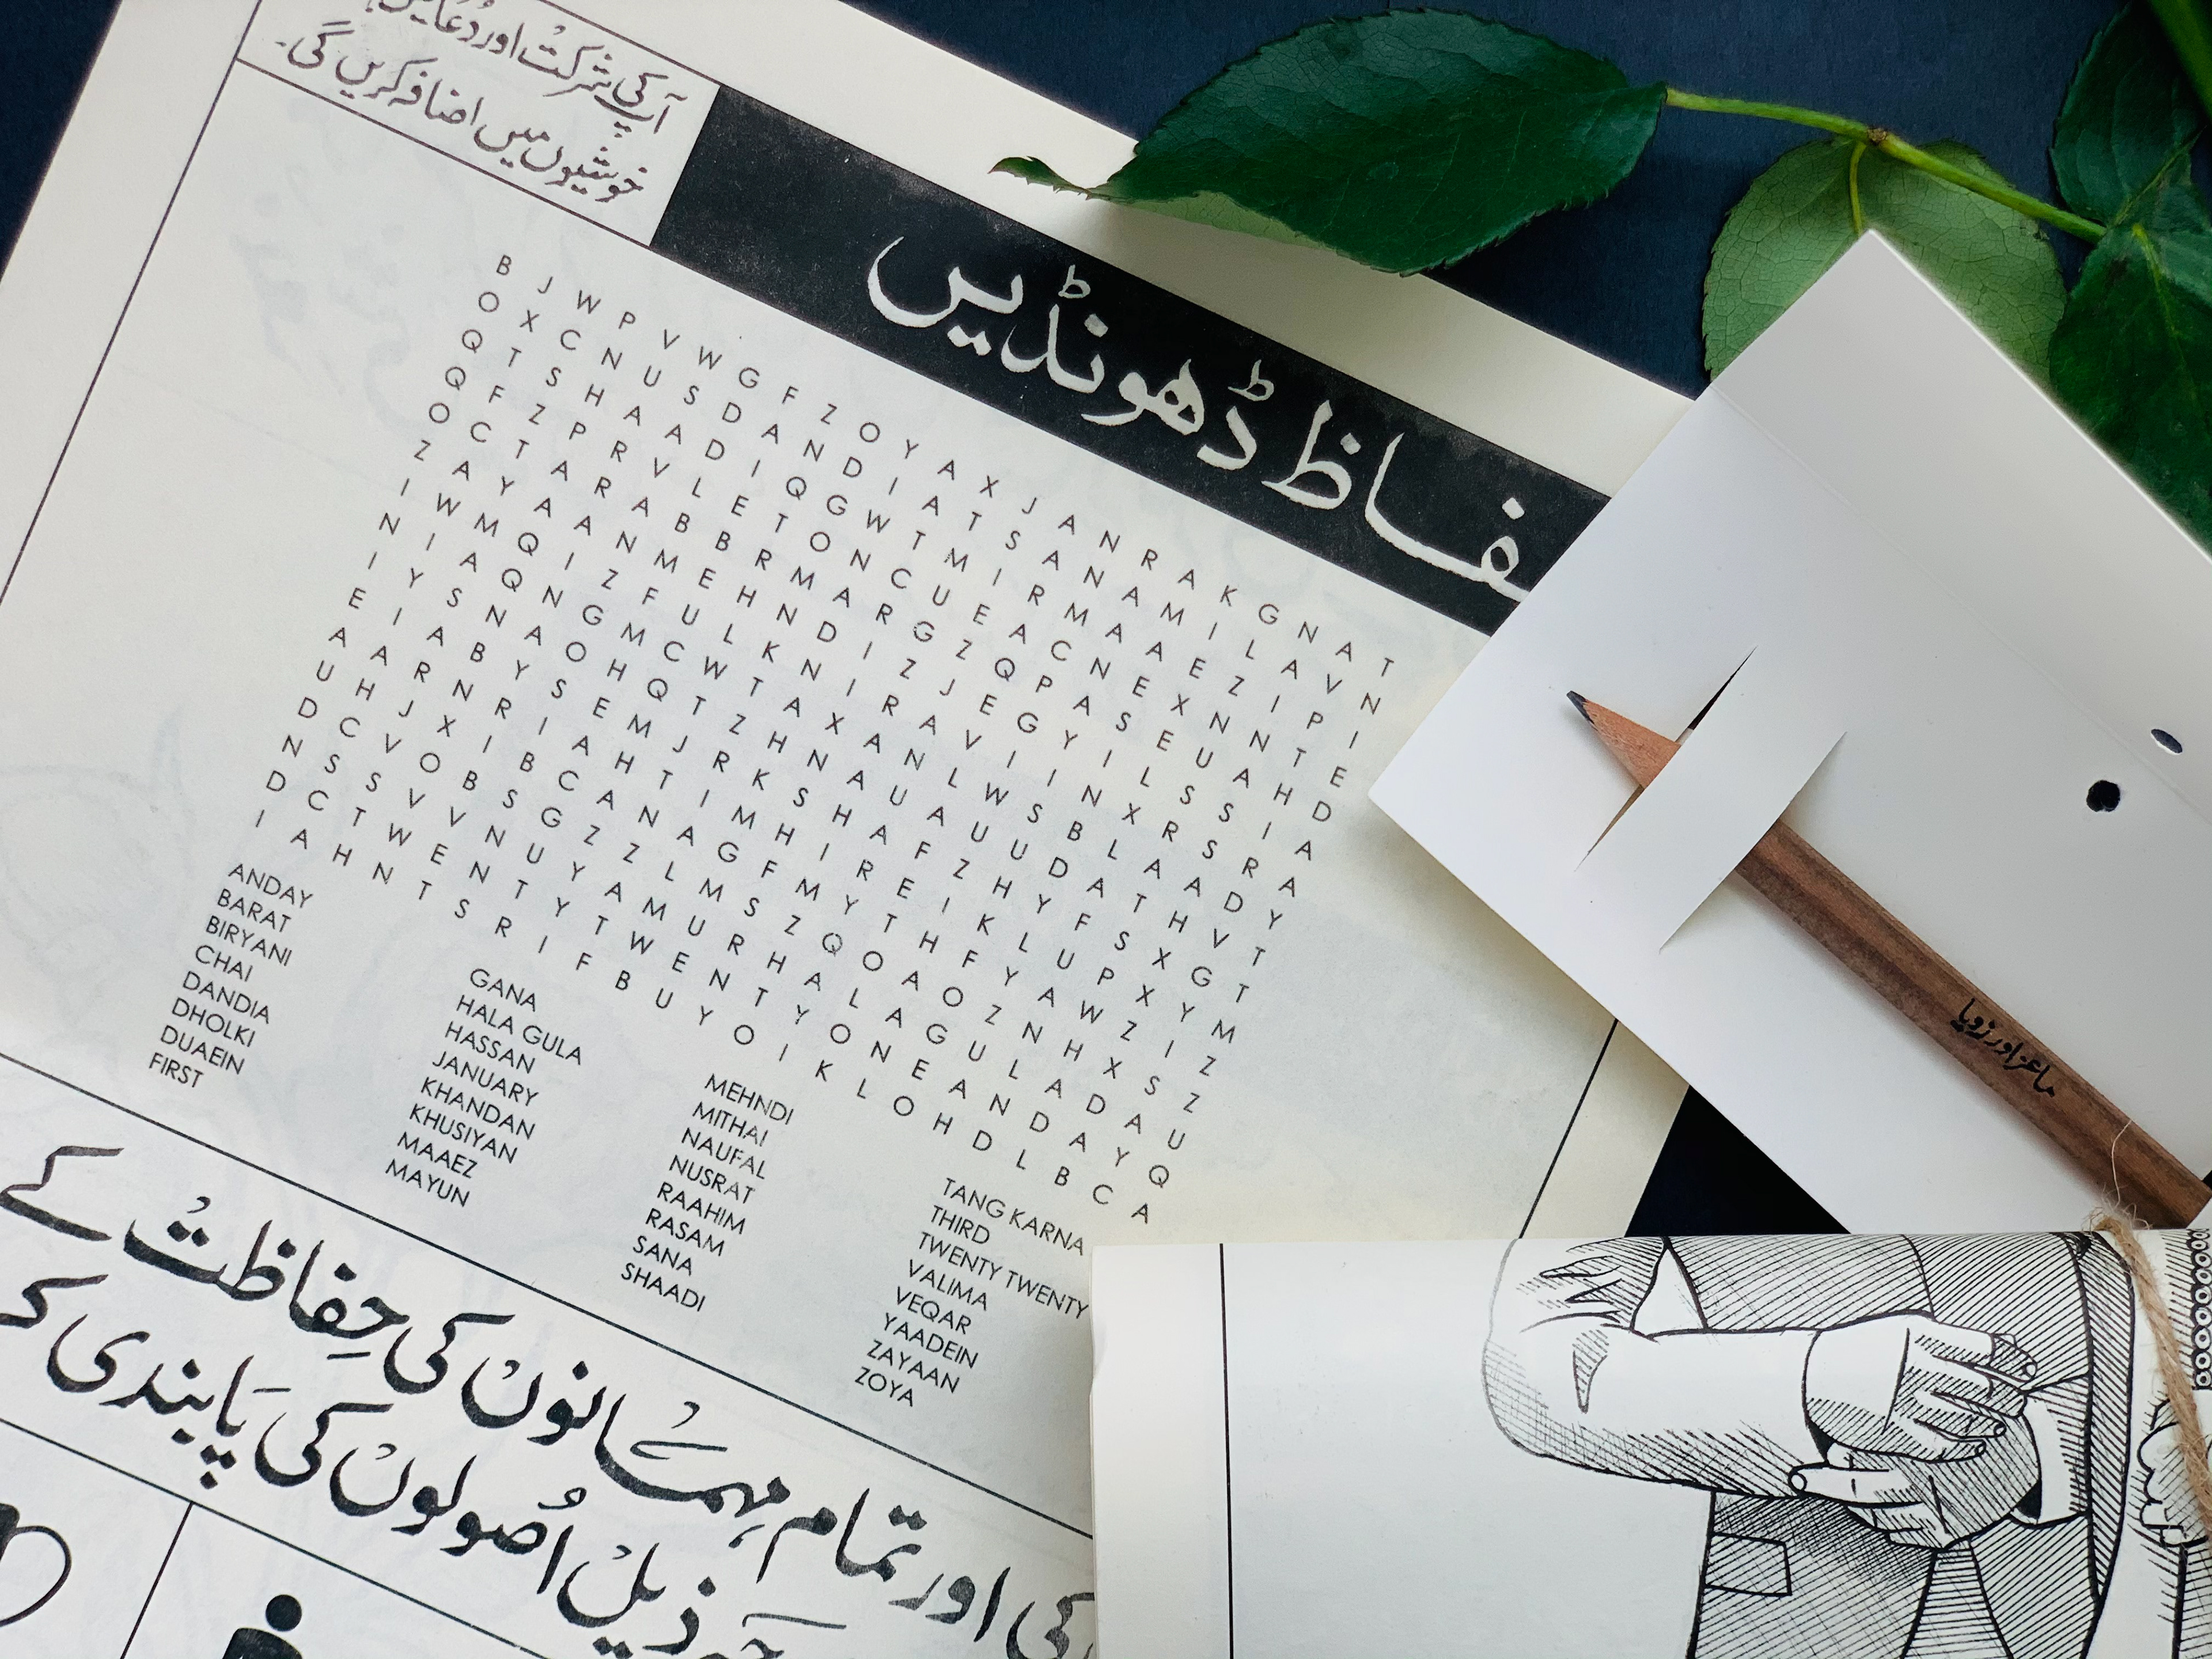 آپ کی شرکت اور دُعائیں
خوشیوں میں اضافہ کریں گی۔
فاظ ڈھونڈیں
B J W P V W G F Z O Y A X J A N R A K G N A T
O X C N U S D A N D I A T S A N A M I L A V N
Q T S H A A D I Q G W T M I R M A A E Z I P I
Q F Z P R V L E T O N C U E A C N E X N N T E
O C T A R A B B R M A R G Z Q P A S E U A H D
Z A Y A A N M E H N D I Z J E G Y I L S S I A
I W M Q I Z F U L K N I R A V I I N X R S R A
N I A Q N G M C W T A X A N L W S B L A A D Y
I Y S N A O H Q T Z H N A U A U U D A T H V T
E I A B Y S E M J R K S H A F Z H Y F S X G T
A A R N R I A H T I M H I R E I K L U P X Y M
U H J X I B C A N A G F M Y T H F Y A W Z I Z
D C V O B S G Z Z L M S Z Q O A O Z N H X S Z
N S S V V N U Y A M U R H A L A G U L A D A U
D C T W E N T Y T W E N T Y O N E A N D A Y Q
I A H N T S R I F B U Y O I K L O H D L B C A
ANDAY
BARAT
BIRYANI
CHAI
DANDIA
DHOLKI
DUAEIN
FIRST
GANA
HALA GULA
HASSAN
JANUARY
KHANDAN
KHUSIYAN
MAAEZ
MAYUN
MEHNDI
MITHAI
NAUFAL
NUSRAT
RAAHIM
RASAM
SANA
SHAADI
TANG KARNA
THIRD
TWENTY TWENTY
VALIMA
VEQAR
YAADEIN
ZAYAAN
ZOYA
کی اور تمام مہمانوں کی حِفاظت کے
ذیل اُصولوں کی پابندی
ماعز اور زویا